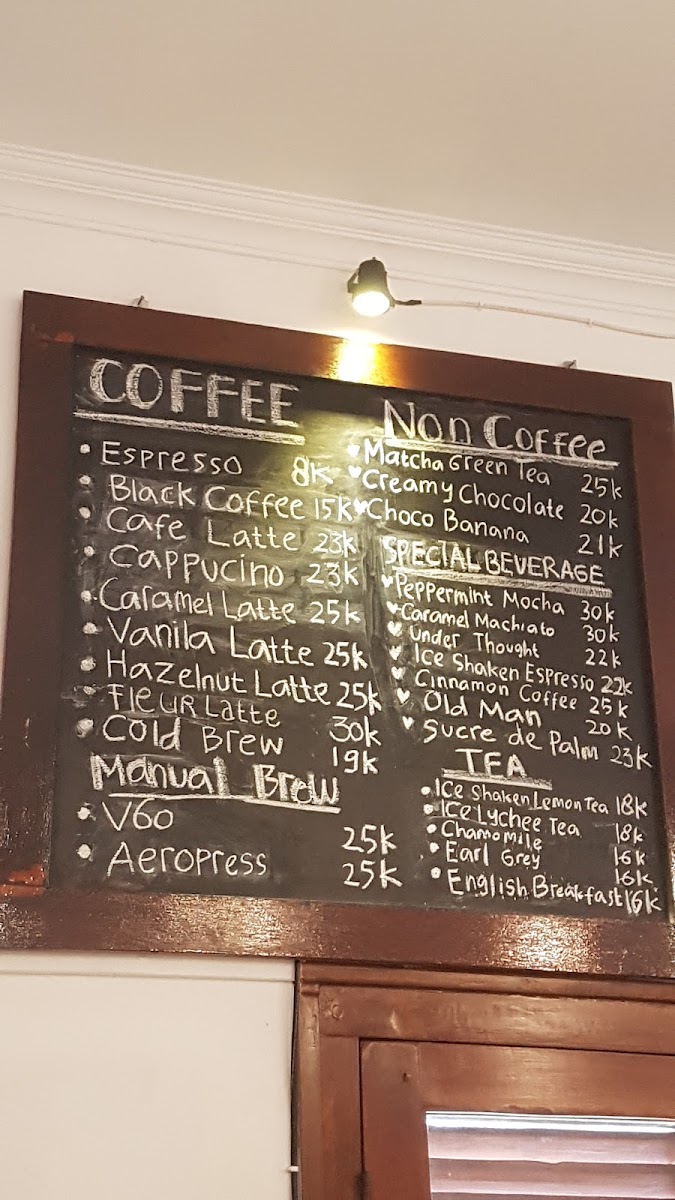 COFFEE
Espresso 8k
Black Coffee 15k
Cafe Latte 23k
Cappucino 23k
Caramel Latte 25k
Vanila Latte 25k
Hazelnut Latte 25k
Fleur Latte 30k
Cold Brew 19k
Manual Brew
V60 25k
Aeropress 25k
Non Coffee
Matcha Green Tea 25k
Creamy Chocolate 20k
Choco Banana 21k
SPECIAL BEVERAGE
Peppermint Mocha 30k
Caramel Machiato 30k
Under Thought 22k
Ice Shaken Espresso 22k
Cinnamon Coffee 25k
Old Man 20k
Sucre de Palm 23k
TEA
Ice Shaken Lemon Tea 18k
Ice Lychee Tea 18k
Chamomile 16k
Earl Grey 16k
English Breakfast 16k